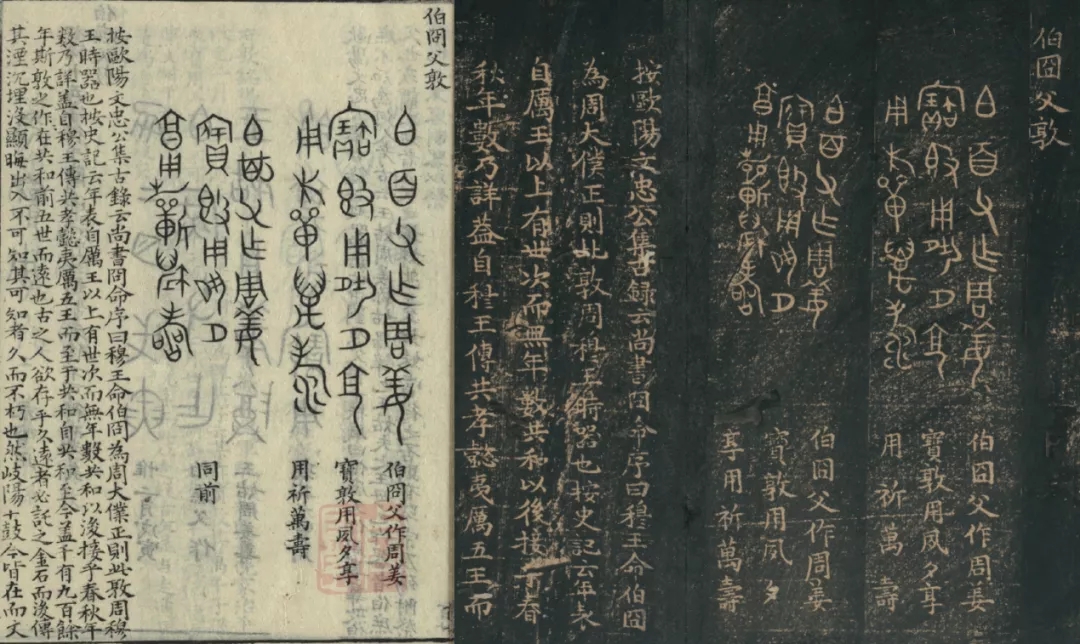 伯冏父敦
伯冏父作周姜
寶敦用夙夕享
用祈萬壽
同前
按歐陽文忠公集古錄云尚書冏命序曰穆王命伯冏為周大僕正則此敦周穆
王時器也按史記云年表自厲王以上有世次而無年數共和以後接乎春秋年
數乃詳蓋自穆王傳共孝懿夷厲五王而至于共和自共和至今蓋千有九百餘
年斯敦之作在共和前五世而遠也古之人欲存乎久遠者必託之金石而後傳
其湮沉埋沒顯晦出入不可知其可知者久而不朽也然岐陽十鼓今皆在而文
伯囧父敦
伯囧父作周姜
寶敦用夙夕享
用祈萬壽
伯囧父作周姜
寶敦用夙夕
享用祈萬壽
按歐陽文忠公集古録云尚書囧命序曰穆王命伯囧
為周大僕正則此敦周穆王時器也按史記云年表
自厲王以上有世次而無年數共和以後接乎春
秋年數乃詳蓋自穆王傳共孝懿夷厲五王而